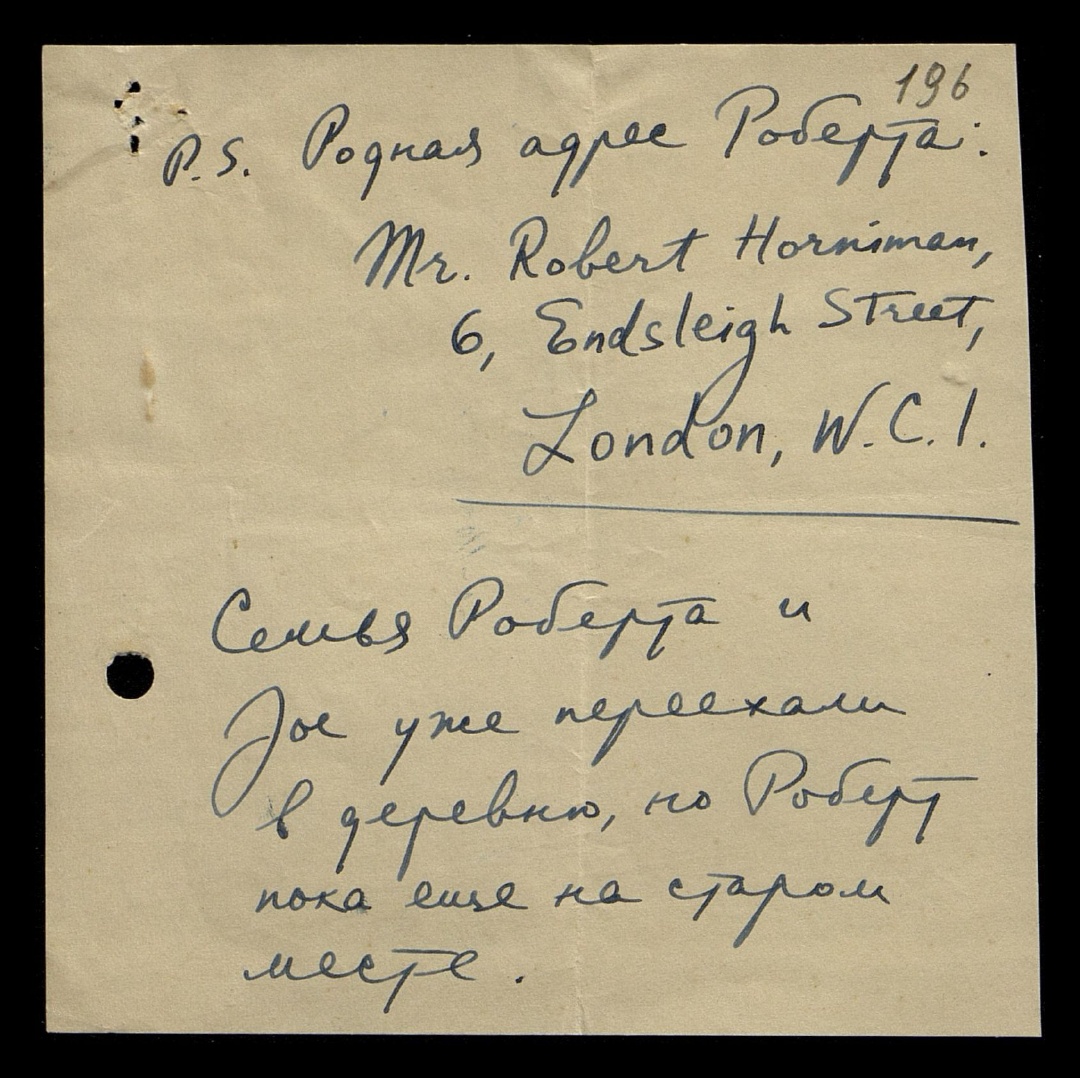 196
P.S. Родная адрес Роберта:
Mr. Robert Horniman,
6, Endsleigh Street,
London, W.C.1.
Семья Роберта и
Joe уже переехали
в деревню, но Роберт
пока еще на старом
месте.